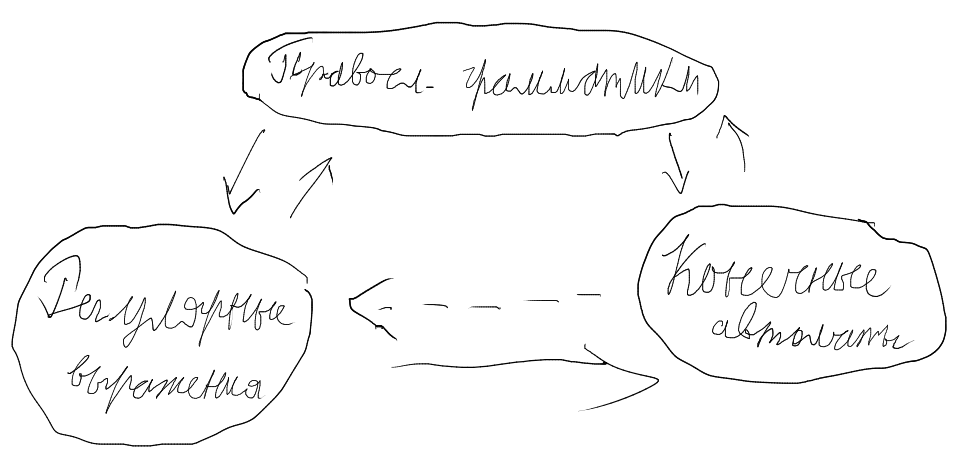 Правол. грамматики
Регулярные
выражения
Конечные
автоматы